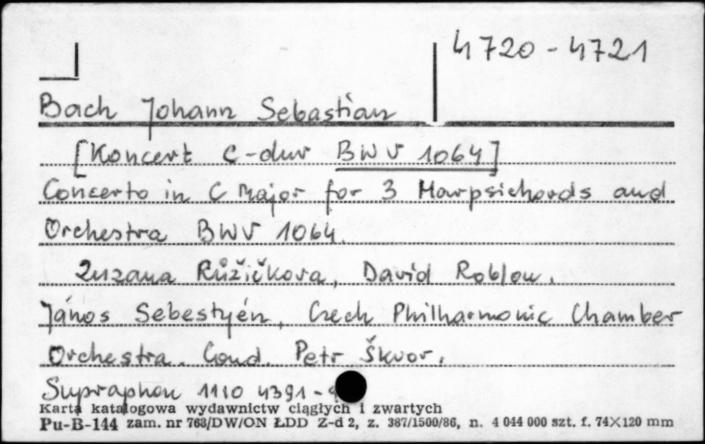 4720-4721
Bach Johann Sebastian
[Koncert C-dur BWV 1064]
Concerto in C Major for 3 Harpsichords and
Orchestra BWV 1064.
Zuzana Růžičkova, David Roblou,
János Sebestyén, Czech Philharmonic Chamber
Orchestra. Cond. Petr Škvor.
Supraphon 1110 4391-
Karta katalogowa wydawnictw ciągłych i zwartych
Pu-B-144 zam. nr 768/DW/ON ŁDD Z-d 2, z. 387/1500/86, n. 4 044 000 szt. f. 74×120 mm